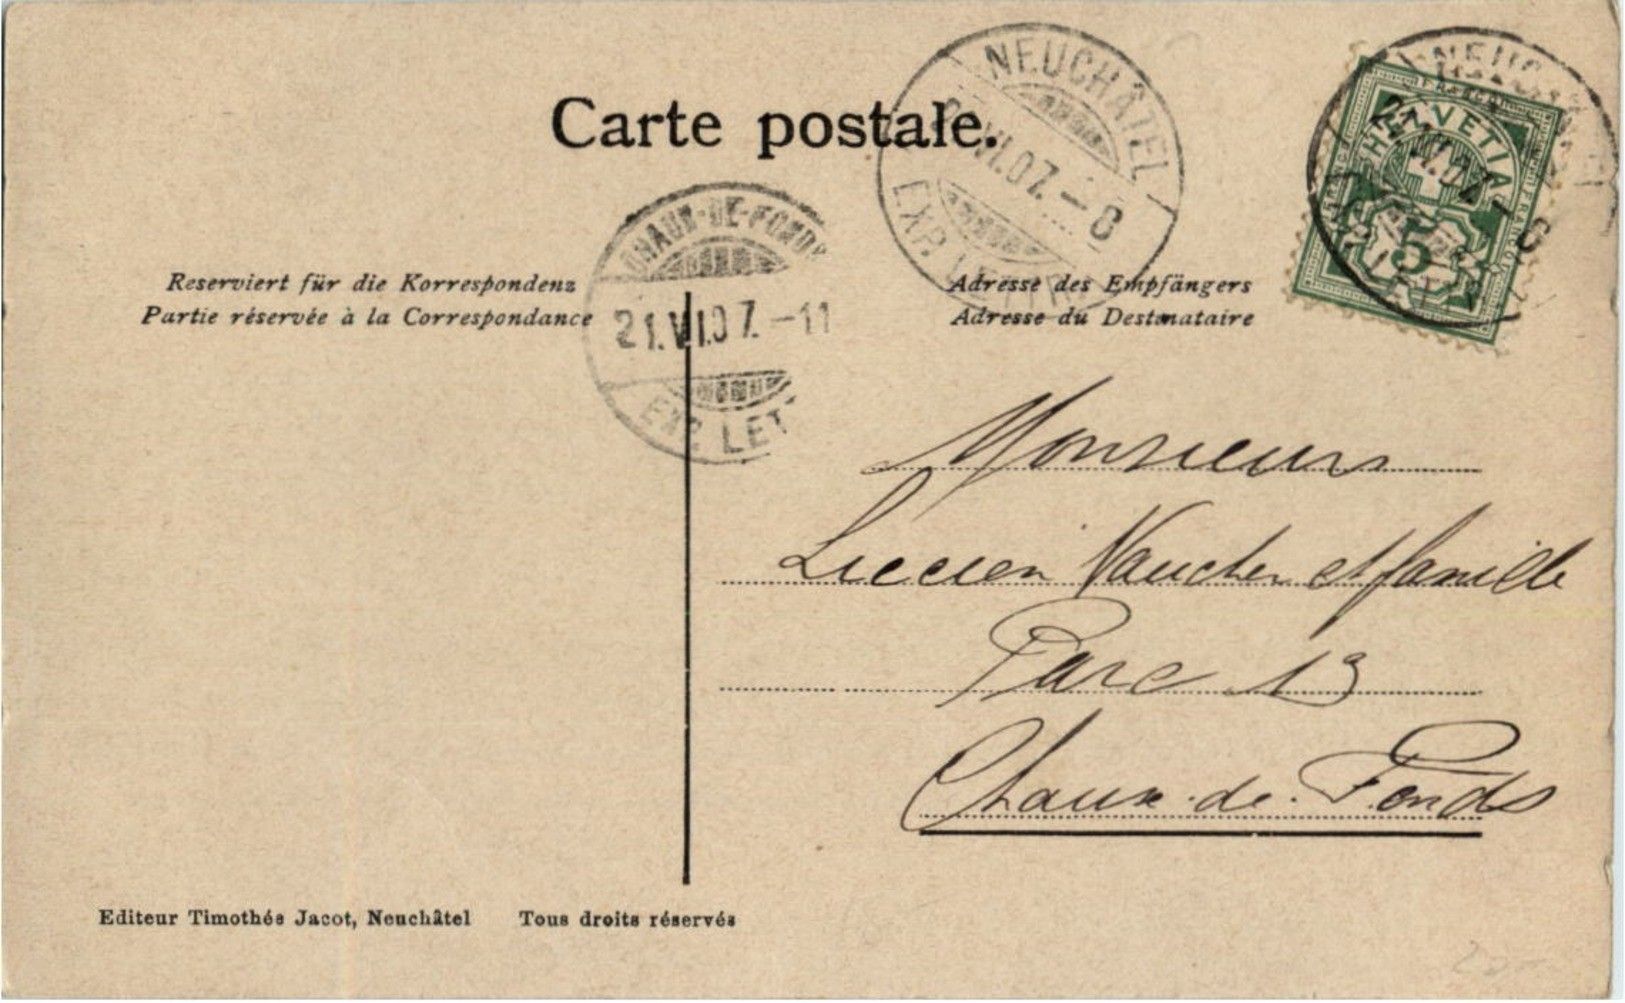 Carte postale.
NEUCHÂTEL
VI.07.-8
EXP. LETTR.
NEUCHÂTEL
21.VI.07.-8
HELVETIA
FRANCO
5
CHAUX-DE-FONDS
21.VI.07.-11
EXP. LET
Reserviert für die Korrespondenz
Partie réservée à la Correspondance
Adresse des Empfängers
Adresse du Destinataire
Monsieur
Luccien Vaucher et famille
Parc 13
Chaux-de-Fonds
Editeur Timothée Jacot, Neuchâtel Tous droits réservés